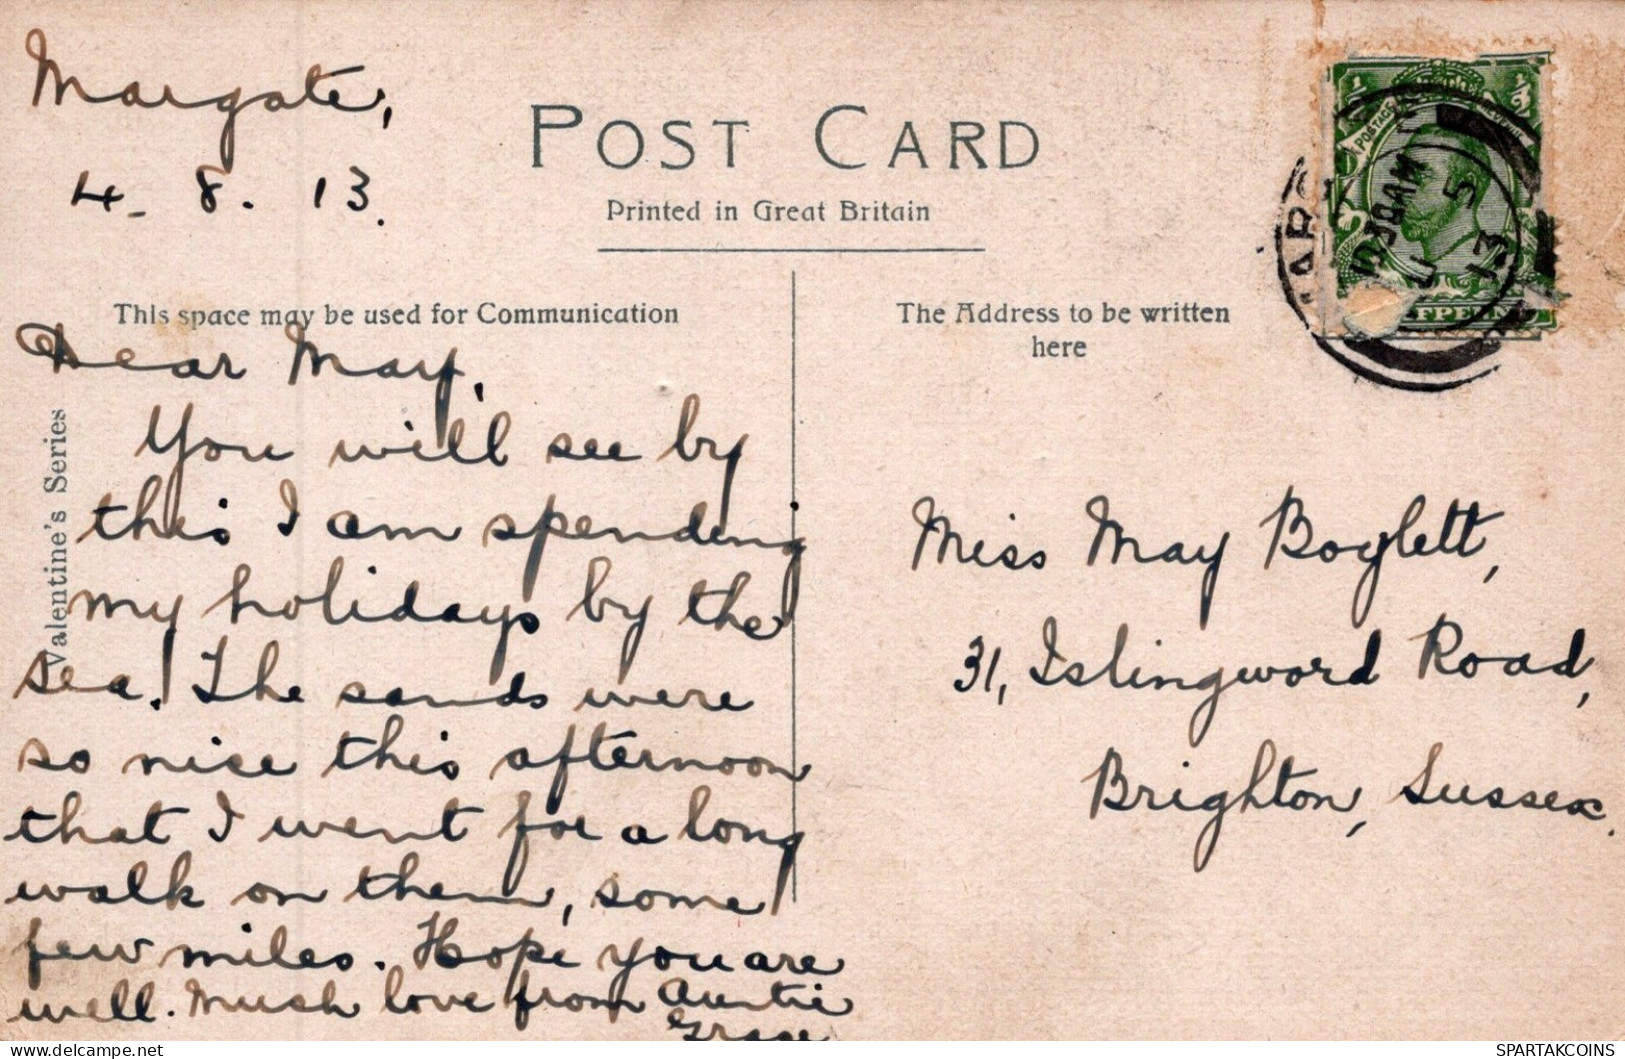 Margate,
4 - 8 - 13.
POST CARD
Printed in Great Britain
This space may be used for Communication
The Address to be written
here
Valentine's Series
Dear May,
You will see by
this I am spending
my holidays by the
sea. The sands were
so nice this afternoon
that I went for a long
walk on them, some
few miles. Hope you are
well. Much love from Auntie
Grace
Miss May Boglett,
31, Islingword Road,
Brighton, Sussex.
½ ½
POSTAGE
AM
5
13
SPARTAKCOINS